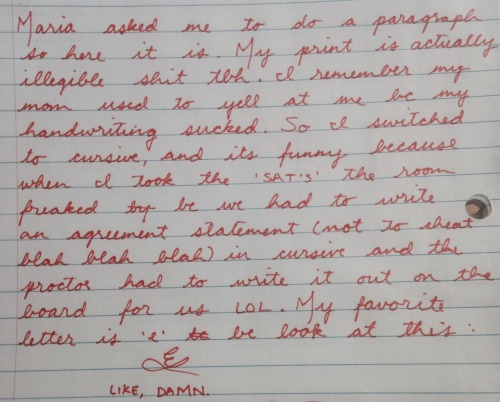 Maria asked me to do a paragraph
so here it is. My print is actually
illegible shit tbh. I remember my
mom used to yell at me bc my
handwriting sucked. So I switched
to cursive, and its funny because
when I took the 'SAT's' the room
freaked by bc we had to write
an agreement statement (not to cheat
blah blah blah) in cursive and the
proctor had to write it out on the
board for us LOL. My favorite
letter is 'e' bc look at this:
E
LIKE, DAMN.